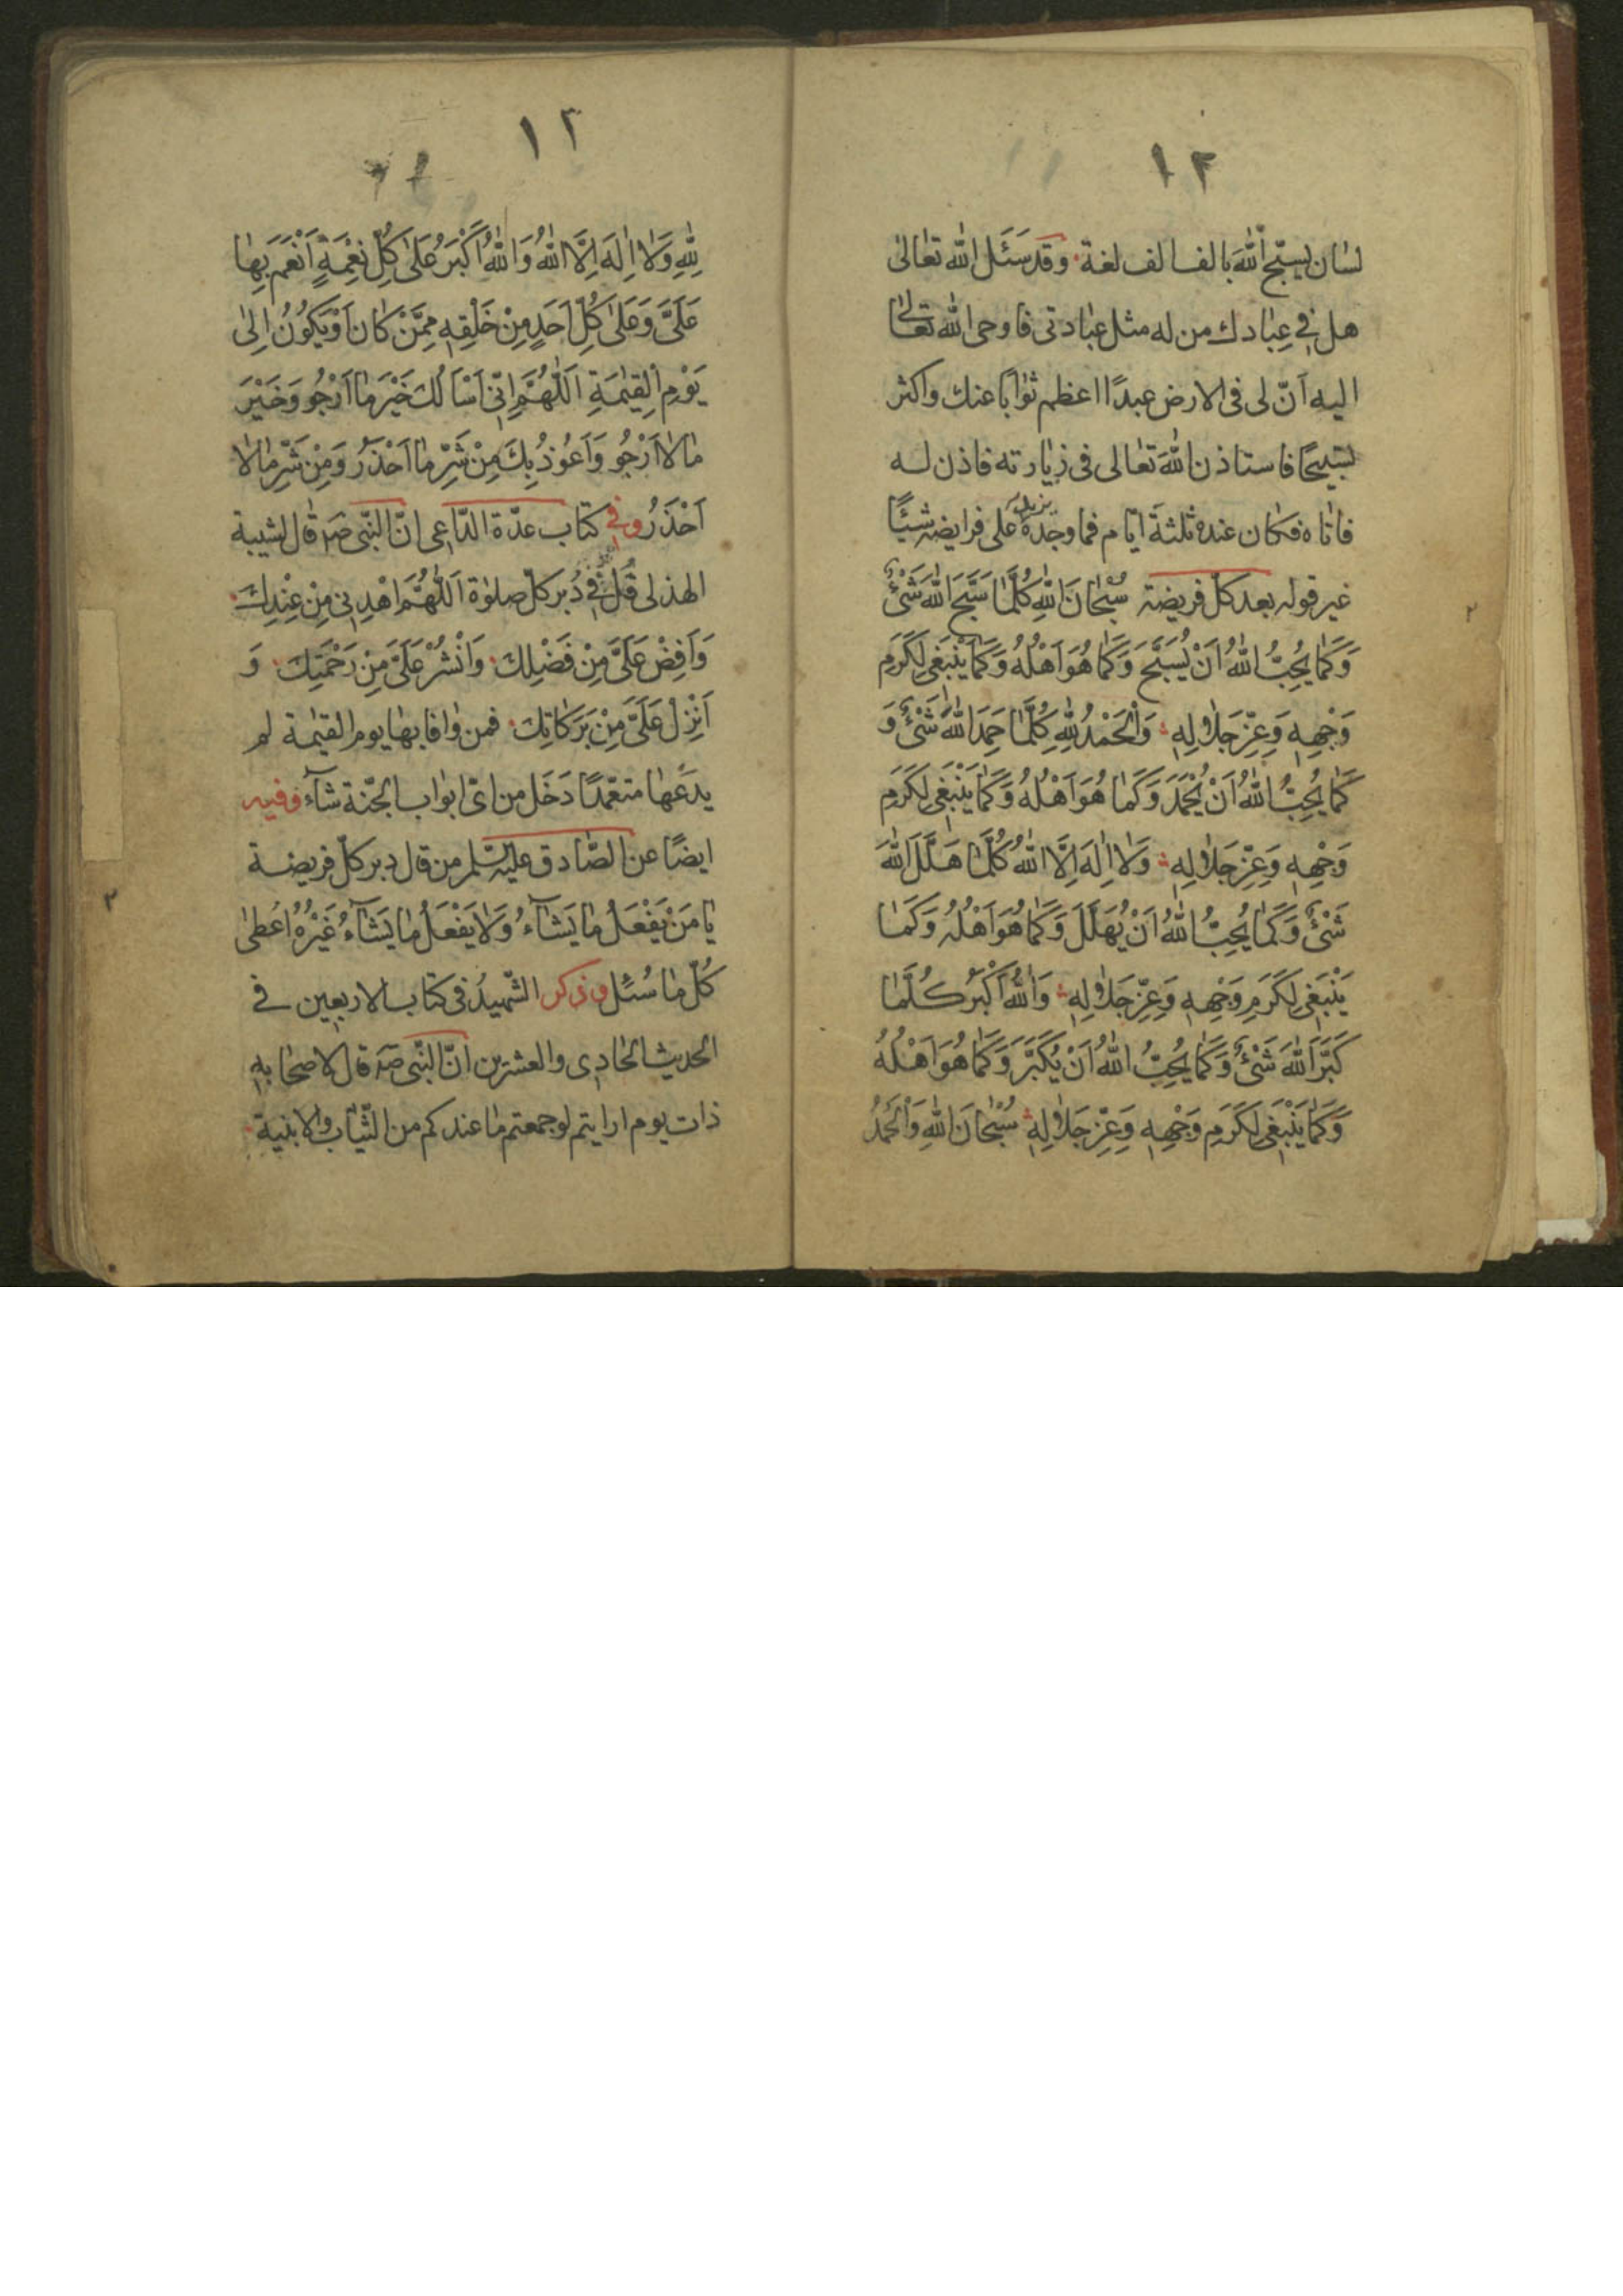 ١٢
لسان يسبّح اللّٰهَ بالف الف لغة وقد سَئَل اللّٰه تعٰالىٰ
هل فى عِبٰادك من له مثل عبٰادتى فاوحى اللّٰه تعٰالىٰ
اليه اَنّ لى فى الارض عبدًا اعظم ثوٰابًا عنك واكثر
تسبيحًا فاستاذن اللّٰهَ تعٰالى فى زيٰارته فاذن لـه
فاتٰاه فكان عنده ثلثةَ ايّام فما وجَدَهُ يزيد على فرايضه شيئًا
غير قوله بعد كلّ فريضة سُبْحٰانَ اللّٰهِ كُلَّمٰا سَبَّحَ اللّٰهَ شَىْءٌ
وَكَمٰا يُحِبُّ اللّٰهُ اَنْ يُسَبَّحَ وَكَمٰا هُوَ اَهْلُهُ وَكَمٰا يَنْبَغى لِكَرَمِ
وَجْهِهِ وَعِزِّ جَلٰالِهِ وَالْحَمْدُ لِلّٰهِ كُلَّمٰا حَمِدَ اللّٰهَ شَىْءٌ وَ
كَمٰا يُحِبُّ اللّٰهُ اَنْ يُحْمَدَ وَكَمٰا هُوَ اَهْلُهُ وَكَمٰا يَنْبَغى لِكَرَمِ
وَجْهِهِ وَعِزِّ جَلٰالِهِ وَلٰا اِلٰهَ اِلَّا اللّٰهُ كُلَّمٰا هَلَّلَ اللّٰهَ
شَىْءٌ وَكَمٰا يُحِبُّ اللّٰهُ اَنْ يُهَلَّلَ وَكَمٰا هُوَ اَهْلُهُ وَكَمٰا
يَنْبَغى لِكَرَمِ وَجْهِهِ وَعِزِّ جَلٰالِهِ وَاللّٰهُ اَكْبَرُ كُلَّمٰا
كَبَّرَ اللّٰهَ شَىْءٌ وَكَمٰا يُحِبُّ اللّٰهُ اَنْ يُكَبَّرَ وَكَمٰا هُوَ اَهْلُهُ
وَكَمٰا يَنْبَغى لِكَرَمِ وَجْهِهِ وَعِزِّ جَلٰالِهِ سُبْحٰانَ اللّٰهِ وَالْحَمْدُ
١٢
لِلّٰهِ وَلٰا اِلٰهَ اِلَّا اللّٰهُ وَاللّٰهُ اَكْبَرُ عَلىٰ كُلِّ نِعْمَةٍ اَنْعَمَ بِهٰا
عَلَىَّ وَعَلىٰ كُلِّ اَحَدٍ مِنْ خَلْقِهِ مِمَّنْ كٰانَ اَوْ يَكُونُ اِلىٰ
يَوْمِ الْقِيٰمَةِ اَللّٰهُمَّ اِنّى اَسْاَلُكَ خَيْرَ مٰا اَرْجُو وَخَيْرَ
مٰا لٰا اَرْجُو وَاَعُوذُ بِكَ مِنْ شَرِّ مٰا اَحْذَرُ وَمِنْ شَرِّ مٰا لٰا
اَحْذَرُ وفى كتاب عدّة الدّاعى انّ النّبى صٓ قٰال لشيبة
الهذلى قُلْ فى دُبر كلّ صلوٰة اَللّٰهُمَّ اهْدِنى مِنْ عِنْدِكَ
وَاَفِضْ عَلَىَّ مِنْ فَضْلِكَ وَانْشُرْ عَلَىَّ مِنْ رَحْمَتِكَ وَ
اَنْزِلْ عَلَىَّ مِنْ بَرَكٰاتِكَ فمن وٰافا بهٰا يوم القيٰمة لم
يدَعهٰا متعمّدًا دَخَل من اىّ ابوٰاب الجنّة شآء وفيه
ايضًا عن الصّٰادق عليه السّلم من قال دبر كلّ فريضـة
يٰا مَنْ يَفْعَلُ مٰا يَشٰآءُ وَلٰا يَفْعَلُ مٰا يَشٰآءُ غَيْرُهُ اُعطىٰ
كُلّ مٰا سُئل وذكر الشّهيدُ فى كتاب الاربعين فى
الحديث الحٰادى والعشرين انّ النّبى صٓ قال لاصحٰابه
ذات يوم ارايتم لو جمعتم مٰا عندكم من الثّيٰاب والابنية